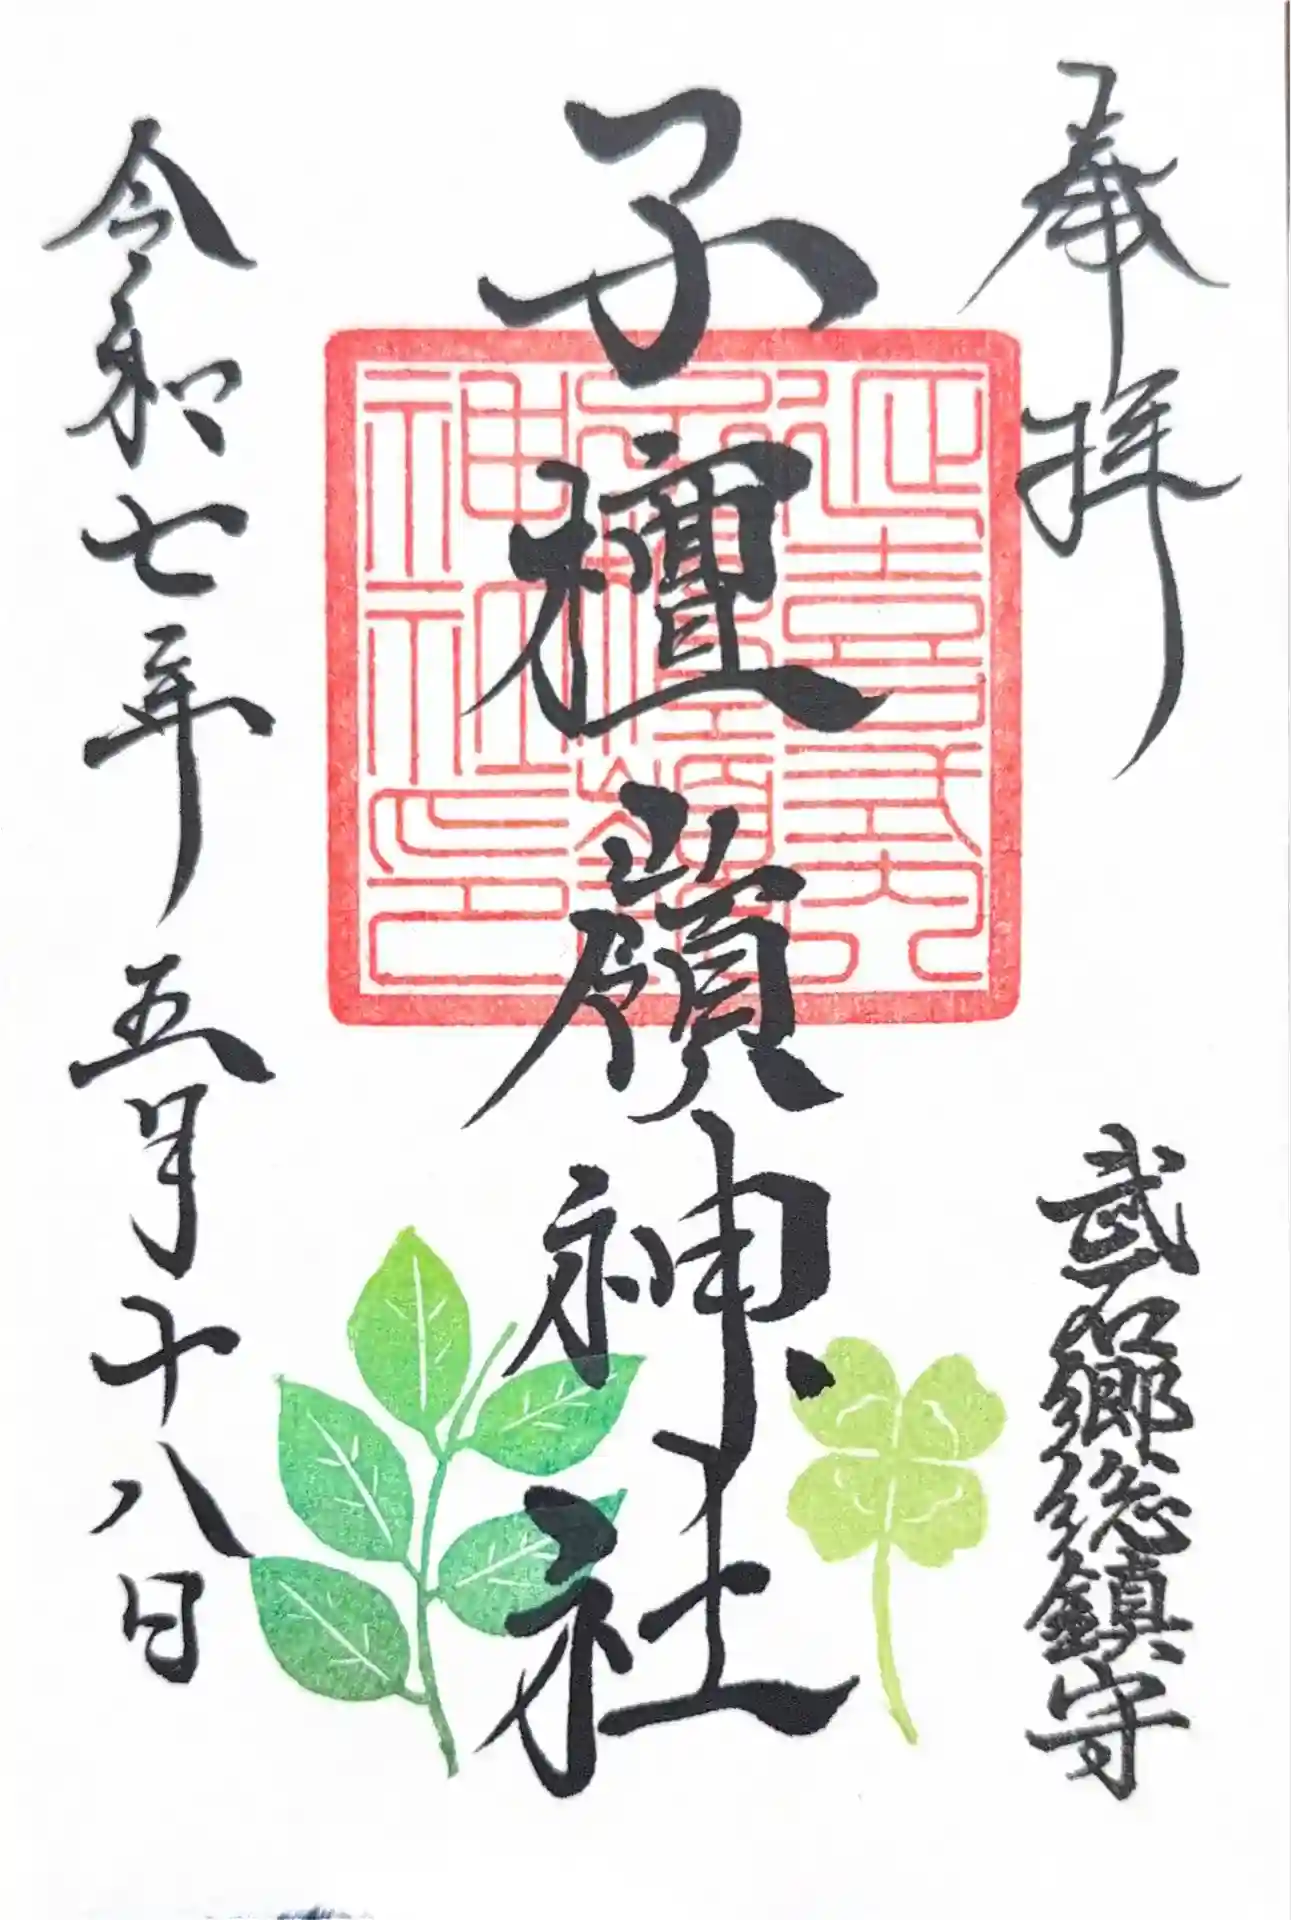 奉拝
武石郷総鎮守
子檀嶺神社
延喜式内
子檀嶺
神社印
令和七年五月十八日